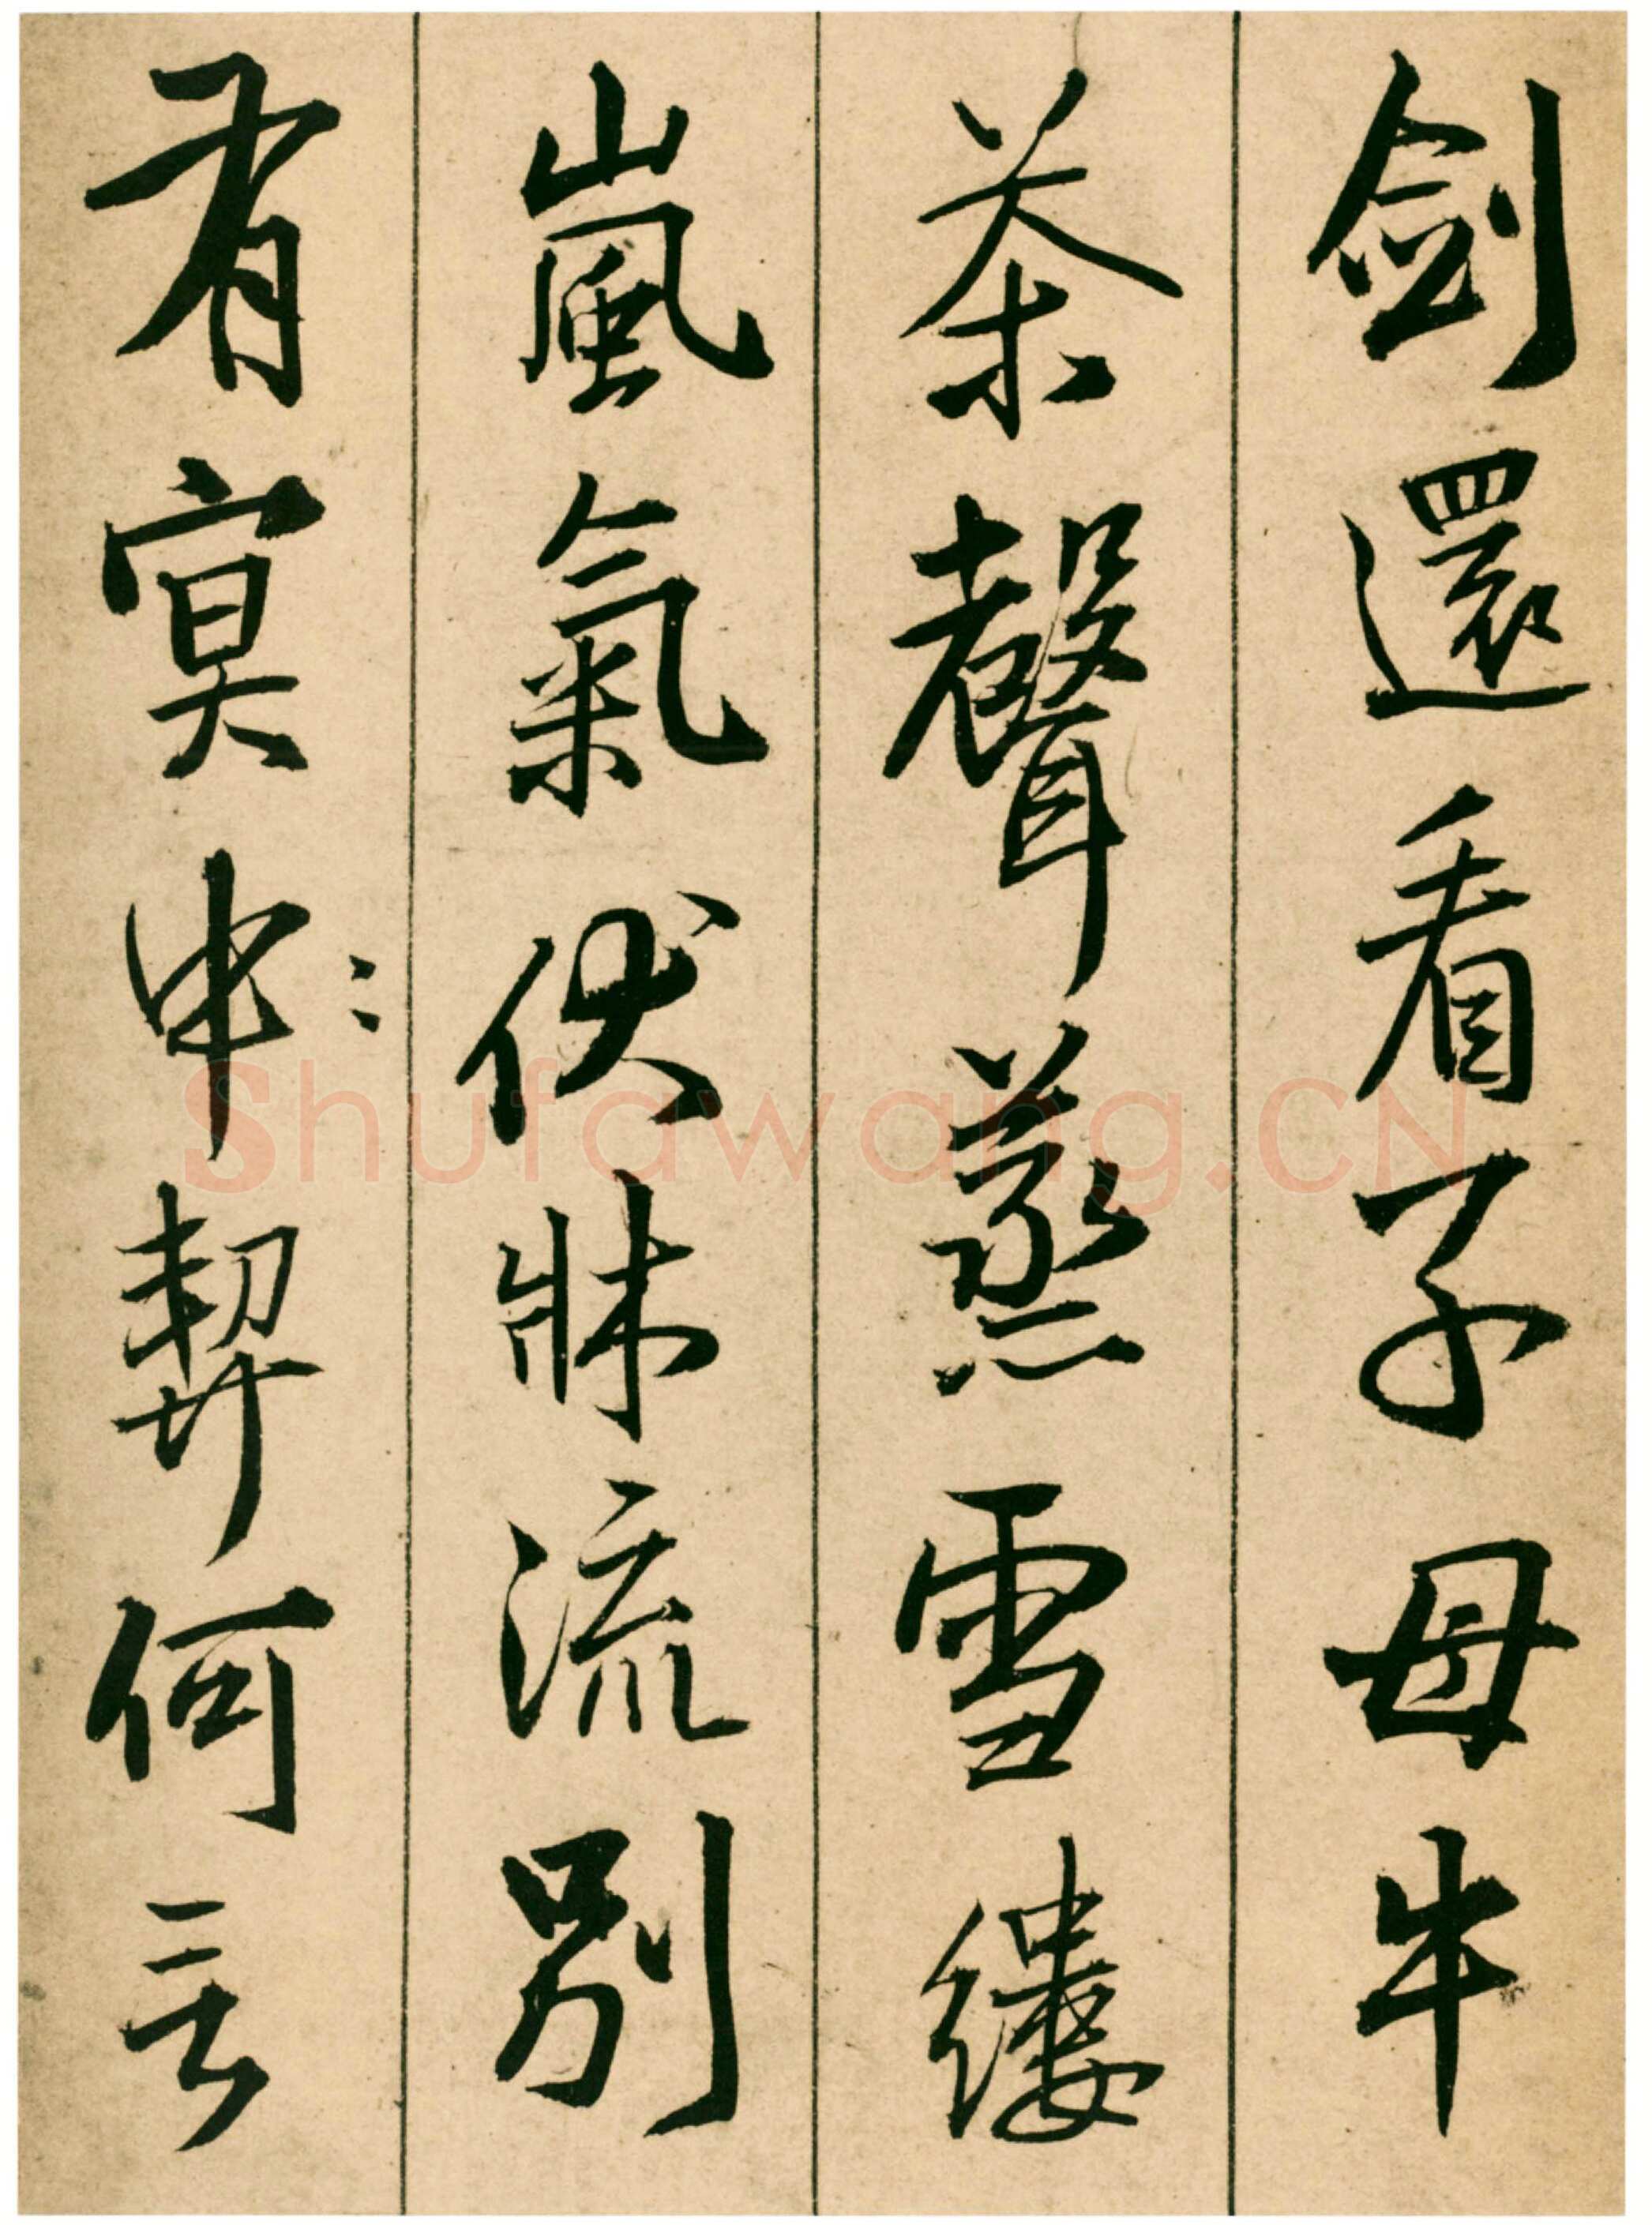 劍還看子母牛
茶聲蒸雪縷
嵐氣伏牀流別
有冥申契何言
Shufawang.CN